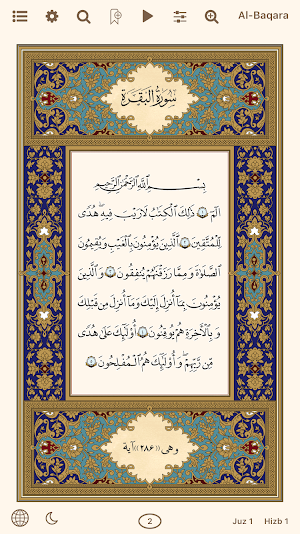 Al-Baqara
سُورَةُ الْبَقَرَةِ
بِسْمِ اللَّهِ الرَّحْمَٰنِ الرَّحِيمِ
الٓمٓ ١ ذَٰلِكَ ٱلْكِتَٰبُ لَا رَيْبَ فِيهِ هُدًى
لِّلْمُتَّقِينَ ٢ ٱلَّذِينَ يُؤْمِنُونَ بِٱلْغَيْبِ وَيُقِيمُونَ
ٱلصَّلَوٰةَ وَمِمَّا رَزَقْنَٰهُمْ يُنفِقُونَ ٣ وَٱلَّذِينَ
يُؤْمِنُونَ بِمَآ أُنزِلَ إِلَيْكَ وَمَآ أُنزِلَ مِن قَبْلِكَ
وَبِٱلْءَاخِرَةِ هُمْ يُوقِنُونَ ٤ أُو۟لَٰٓئِكَ عَلَىٰ هُدًى
مِّن رَّبِّهِمْ وَأُو۟لَٰٓئِكَ هُمُ ٱلْمُفْلِحُونَ ٥
وهى ((٢٨٦)) آية
2
Juz 1 Hizb 1